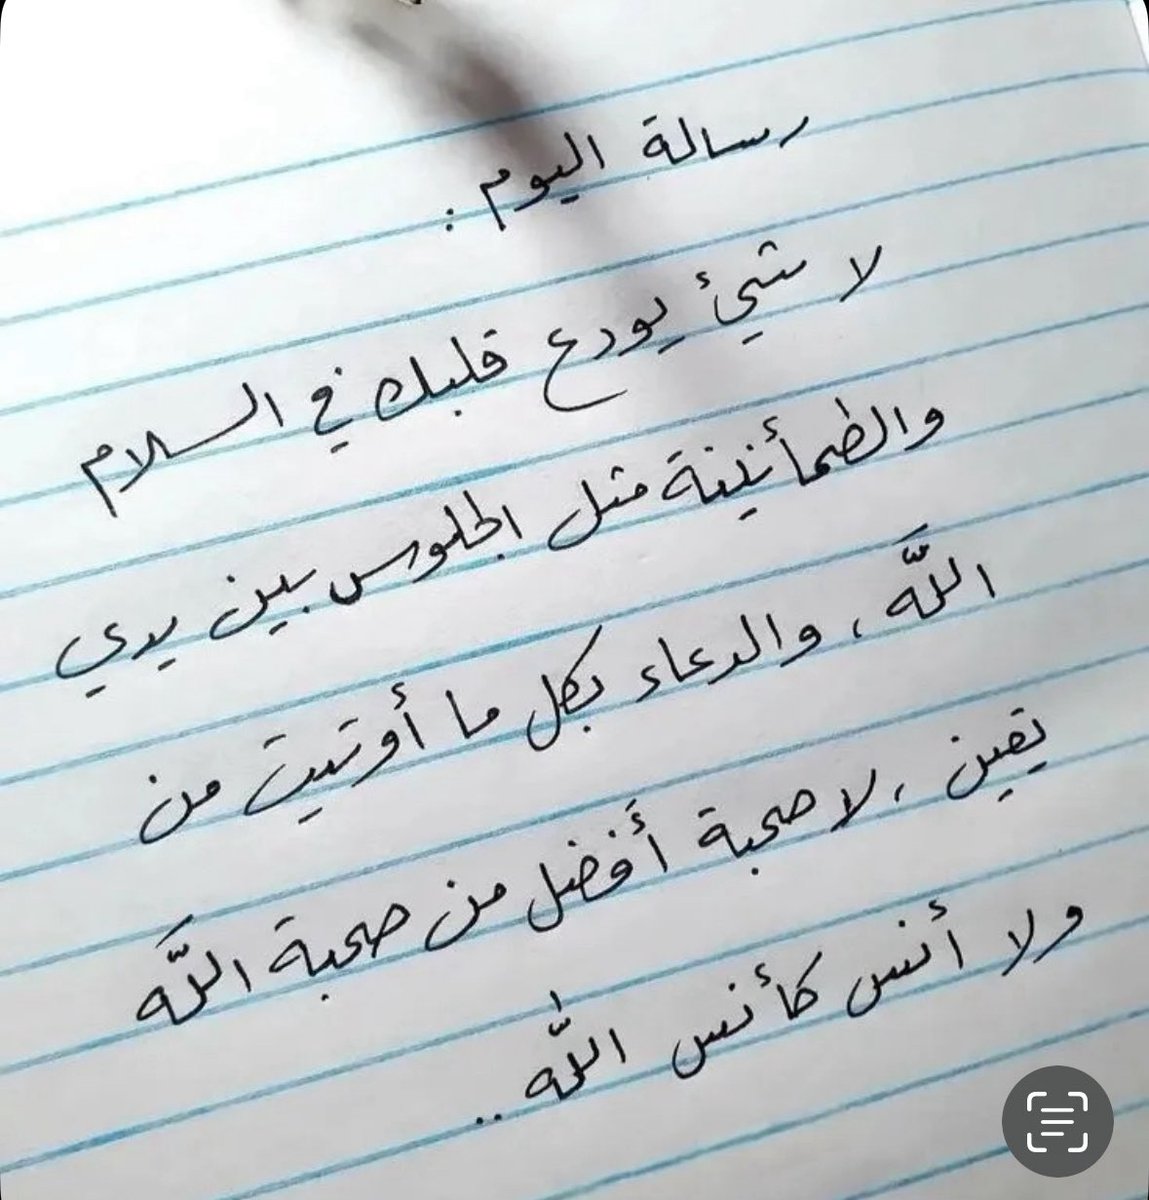 رسالة اليوم :
لا شيئ يودع قلبك في السلام
والطمأنينة مثل الجلوس بين يدي
اللَّه ، والدعاء بكل ما أوتيت من
يقين ، لا صحبة أفضل من صحبة اللَّه
ولا أنس كأنس اللَّه ..